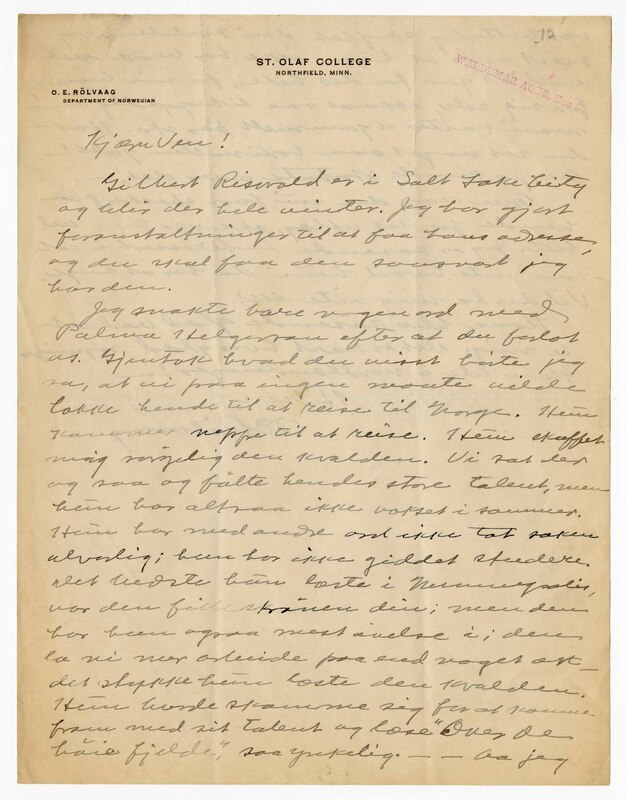 12
ST. OLAF COLLEGE
NORTHFIELD, MINN.
WALDEMAR AGER, Eau
O. E. RÖLVAAG
DEPARTMENT OF NORWEGIAN
Kjære Ven!
Gilbert Risvold er i Salt Lake City
og blir der hele vinter. Jeg har gjort
foranstaltninger til at faa hans adresse,
og du skal faa den saasnart jeg
har den.
Jeg snakte bare nogen ord med
Palma Helgerson efter at du forlot
os. Gjentok hvad du visst hørte jeg
sa, at vi paa ingen maate vilde
lokke hende til at reise til Norge. Hun
kommer neppe til at reise. Hun skuffet
mig sørgelig den kvælden. Vi sat der
og saa og følte hendes store talent, men
hun har altsaa ikke vokset i sommer.
Hun har med andre ord ikke tat saken
alvorlig; hun har ikke giddet studere.
Det bedste hun læste i Minneapolis,
var den skrønen din; men den
har hun ogsaa mest øvelse i; den
la vi mer arbeide paa end noget
det stykke hun læste den kvælden.
Hun burde skamme seg for at komme
fram med sit talent og læse "Over de
høie fjelde," saa ynkelig. — — Aa jeg